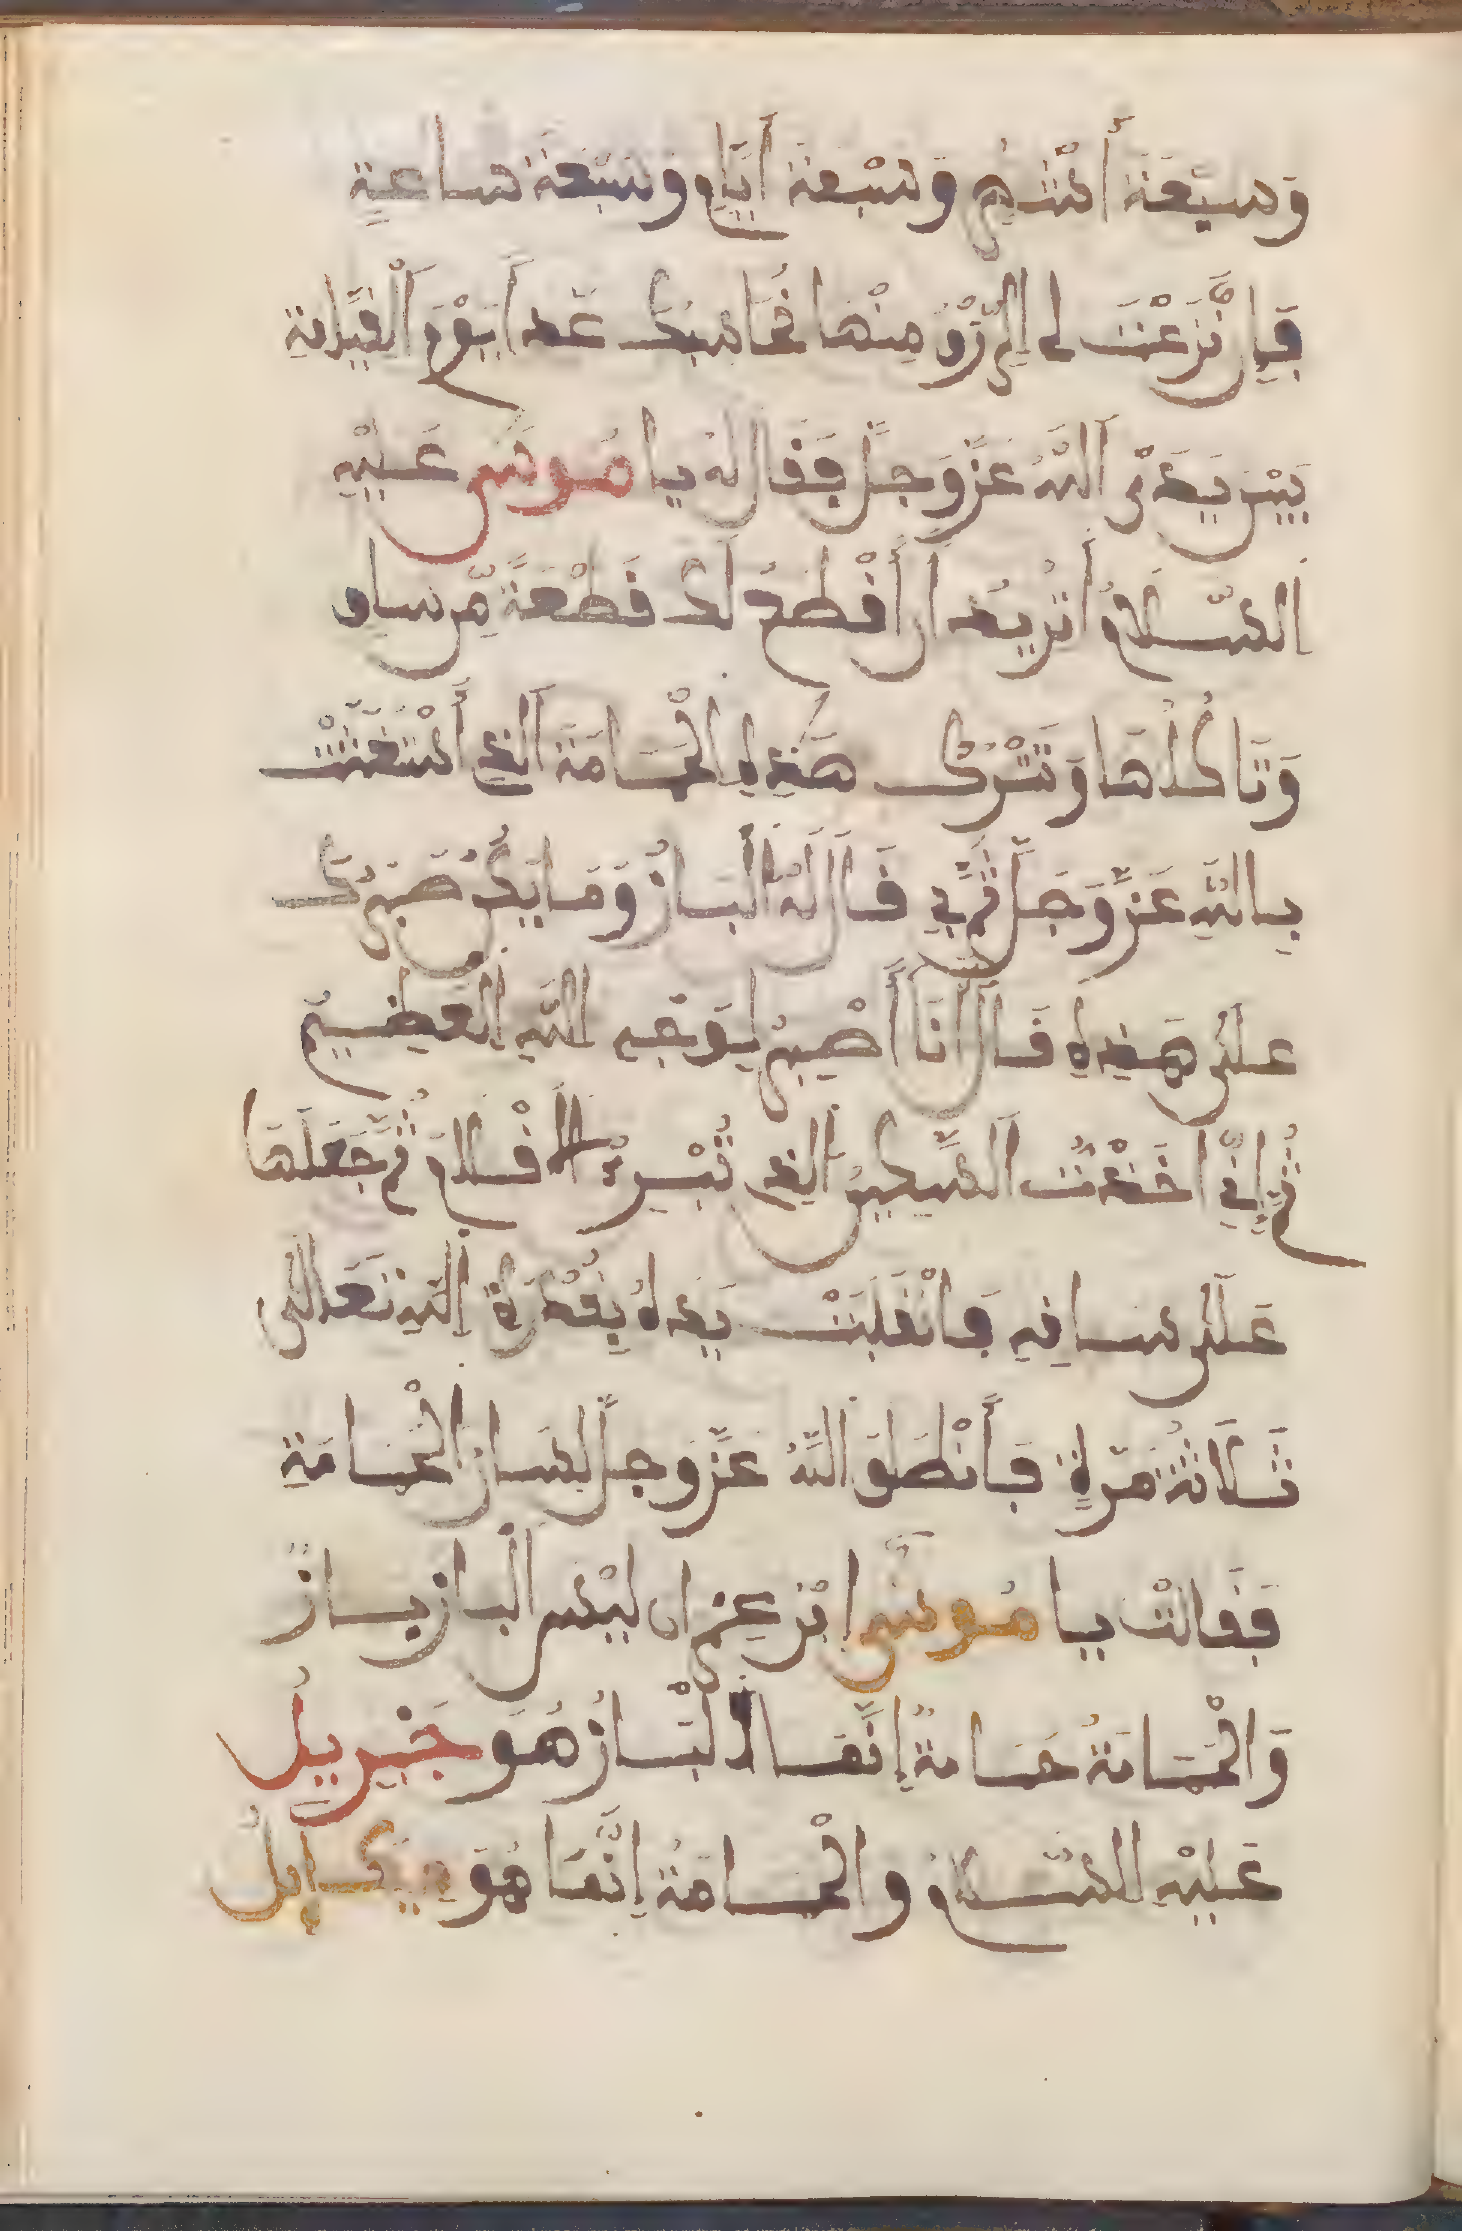 وَسبْعَةَ أَشْهُرٍ وَسَبْعَةَ أَيَّامٍ وَسَبْعَةَ ساعةٍ
فَإِن نَّزَعْتَ لِي الرِّزْقَ مِنْهَا نُحَاسِبُكَ غَدًا يَوْمَ ٱلْقِيَامَةِ
بَيْنَ يَدَيْ ٱللَّهِ عَزَّ وَجَلَّ فَقَالَ لَهُ يا مُوسَى عَلَيْهِ
ٱلسَّلَامُ أَتُرِيدُ أَن أَقْطَعُ لَكَ قَطْعَةً مِّن ساقِ
وَتَاكُلُهَا وَتَتْرُكَ هَذِهِ الْحَمَامَةَ ٱلَّذِي أَسْتَغَثَتْ
بِاللَّهِ عَزَّ وَجَلَّ ثُمَّ بِي قَالَ لَهُ ٱلْبَازُ وَمَا يَكُنْ صَبْرُكَ
عَلَى هَذِهِ قَالَ أَنَا أَصْبِرُ لِوَجْهِ اللَّهِ الْعَظِيمِ
ثُمَّ إِنِّي اخَذْتُ ٱلسِّكِّينَ ٱلَّذِي تُبْرِي الأَقْلَامَ ثُمَّ جَعَلَهَا
عَلَى سَاقِهِ فَانْقَلَبَتْ يَدَهُ بِقُدْرَةِ اللَّهِ تَعَالَى
ثَلَاثَةُ مَرَّةٍ فَأَنْطَقَ اللَّهُ عَزَّ وَجَلَّ لِسَانَ ٱلْحَمَامَةِ
فَقَالَتْ يا مُوسَى اتَزْعِمُ ان لَيْسَ ٱلْبازِ بِبازٍ
وَالْحَمَامَةُ حَمَامَةً إِنَّمَا الْبَازُ هُوَ جَبْرِيلُ
عَلَيْهِ السَّلَامُ وَالْحَمَامَةُ إِنَّمَا هُوَ مِيكَايِلُ